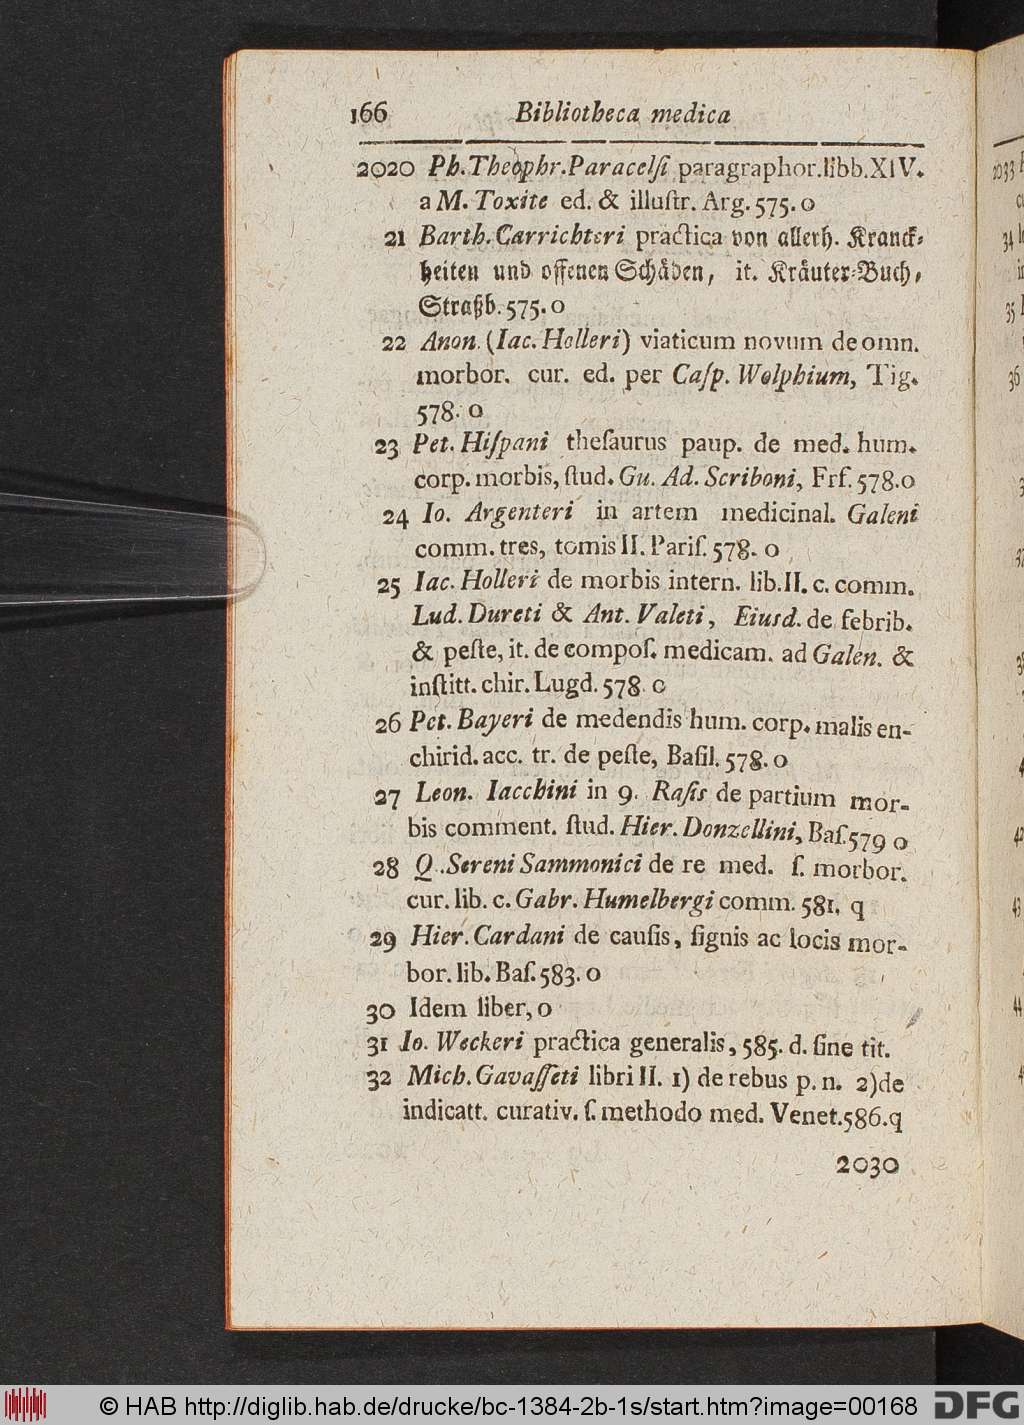 166 Bibliotheca medica
2020 Ph. Theophr. Paracelſi paragraphor. libb. XIV.
a M. Toxite ed. & illuſtr. Arg. 575. o
21 Barth. Carrichteri practica von allerh. Kranck⸗
heiten und offenen Schäden, it. Kräuter⸗Buch,
Straßb. 575. o
22 Anon. (Iac. Holleri) viaticum novum de omn.
morbor. cur. ed. per Caſp. Wolphium, Tig.
578. o
23 Pet. Hiſpani theſaurus paup. de med. hum.
corp. morbis, ſtud. Gu. Ad. Scriboni, Frf. 578. o
24 Io. Argenteri in artem medicinal. Galeni
comm. tres, tomis II. Pariſ. 578. o
25 Iac. Holleri de morbis intern. lib. II. c. comm.
Lud. Dureti & Ant. Valeti, Eiusd. de febrib.
& peſte, it. de compoſ. medicam. ad Galen. &
inſtitt. chir. Lugd. 578 o
26 Pet. Bayeri de medendis hum. corp. malis en-
chirid. acc. tr. de peſte, Baſil. 578. o
27 Leon. Iacchini in 9. Raſis de partium mor-
bis comment. ſtud. Hier. Donzellini, Baſ. 579 o
28 Q. Sereni Sammonici de re med. ſ. morbor.
cur. lib. c. Gabr. Humelbergi comm. 581. q
29 Hier. Cardani de cauſis, ſignis ac locis mor-
bor. lib. Baſ. 583. o
30 Idem liber, o
31 Io. Weckeri practica generalis, 585. d. ſine tit.
32 Mich. Gavaſſeti libri II. 1) de rebus p. n. 2) de
indicatt. curativ. ſ. methodo med. Venet. 586. q
2030
© HAB http://diglib.hab.de/drucke/bc-1384-2b-1s/start.htm?image=00168
DFG